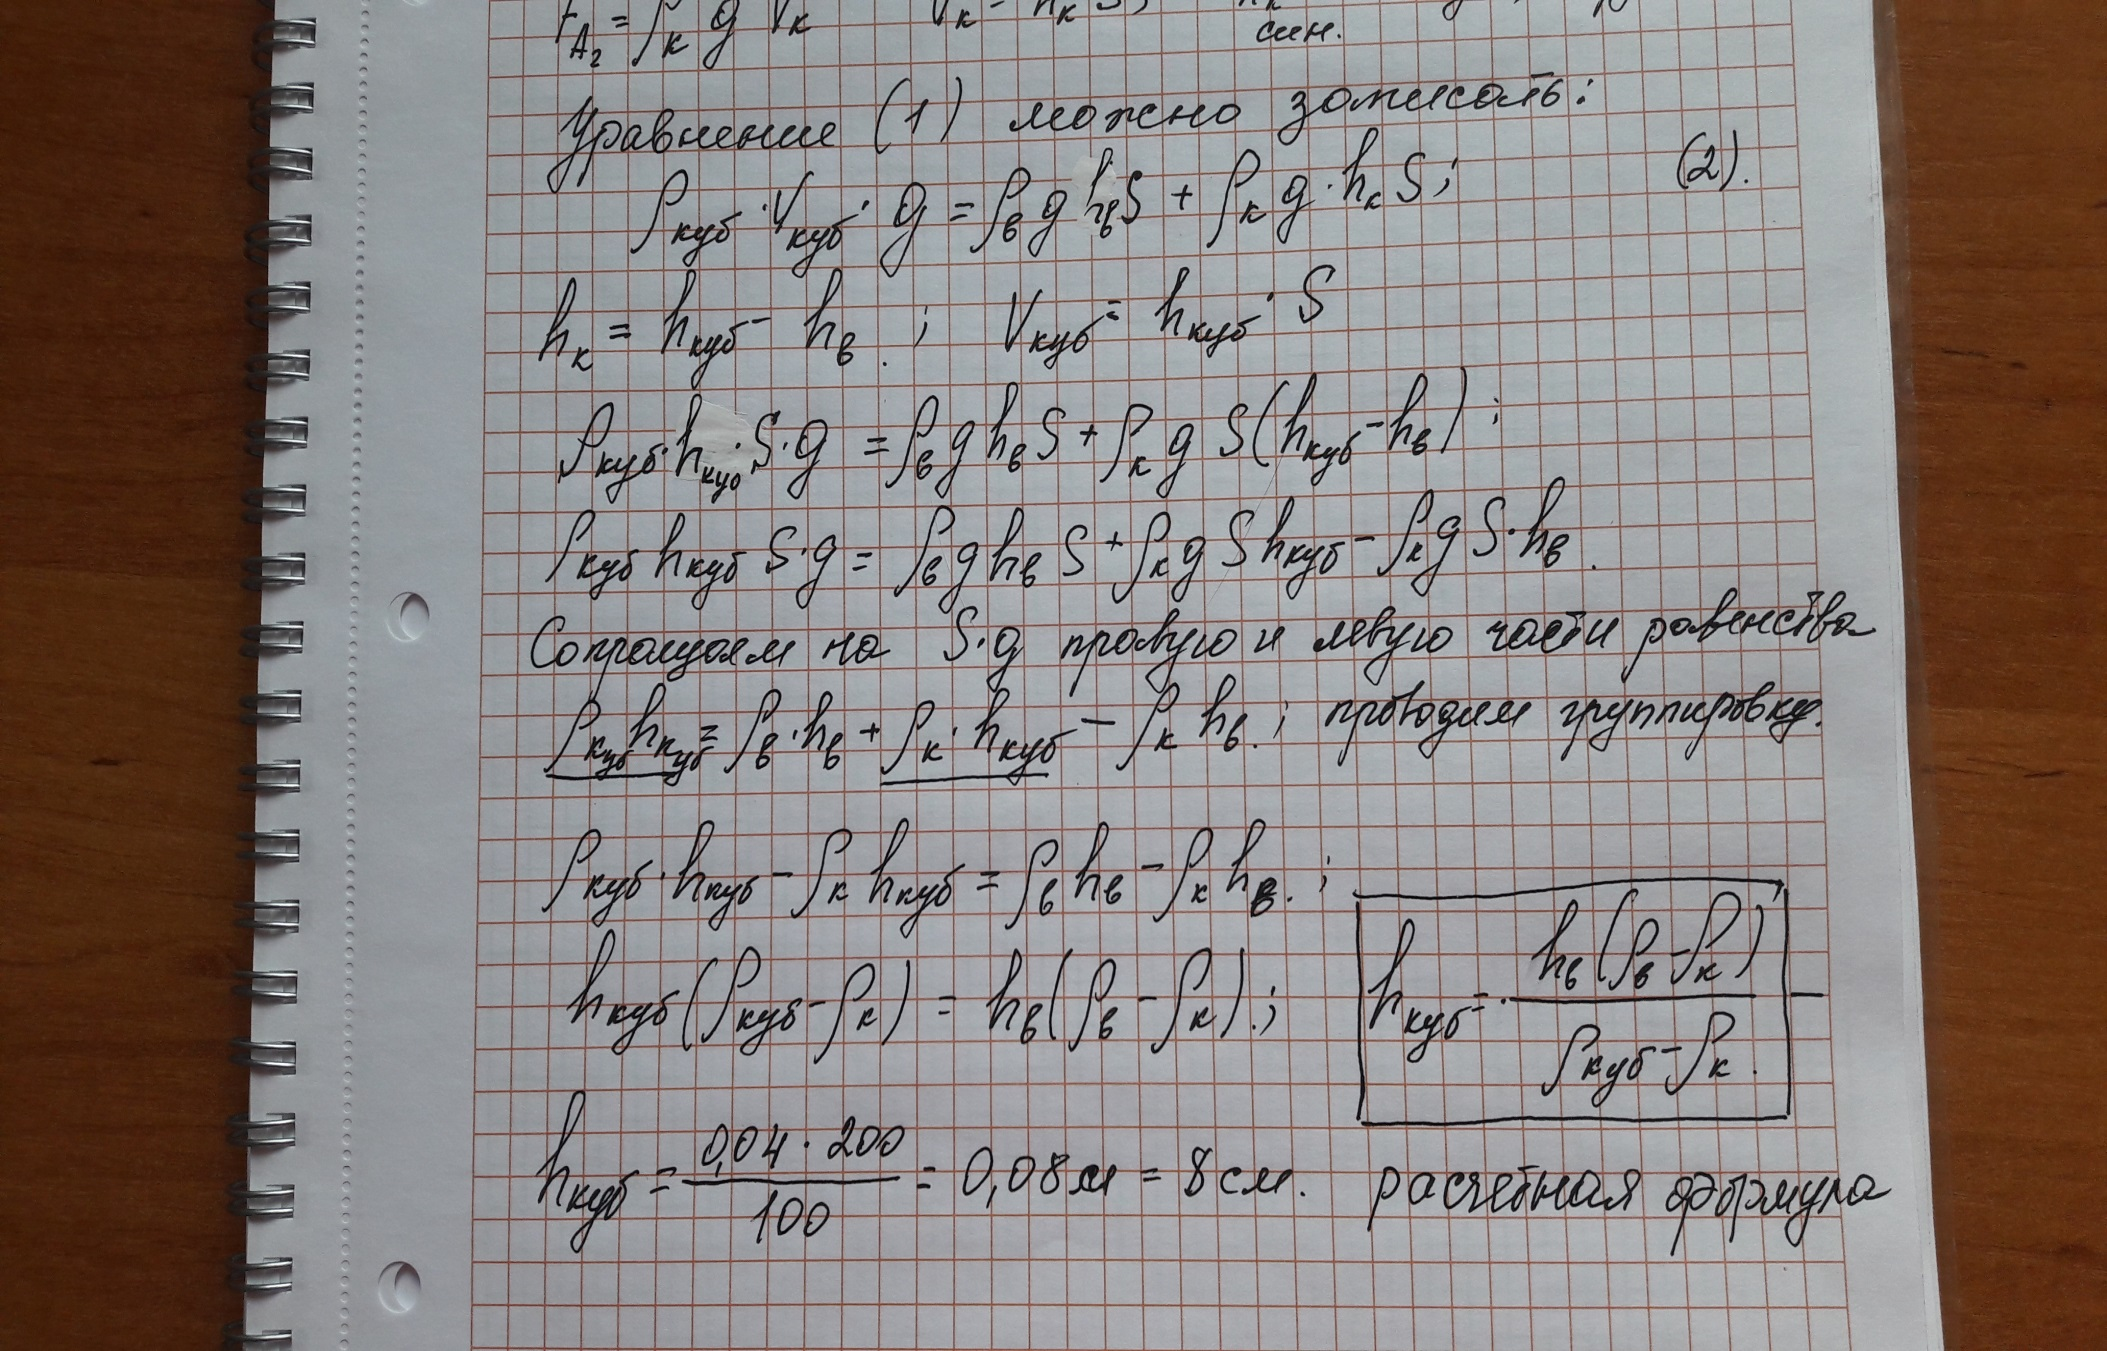 F_A₂ = ρ_к g V_к V_к = h_к S;
син.
Уравнение (1) можно записать:
ρ_куб · V_куб · g = ρ_в g h_в S + ρ_к g · h_к S; (2).
h_к = h_куб - h_в.; V_куб = h_куб · S
ρ_куб · h_куб · S · g = ρ_в g h_в S + ρ_к g S (h_куб - h_в);
ρ_куб h_куб S · g = ρ_в g h_в S + ρ_к g S h_куб - ρ_к g S · h_в.
Сокращаем на S·g правую и левую части равенства
ρ_куб h_куб = ρ_в · h_в + ρ_к · h_куб - ρ_к h_в.; проводим группировку.
ρ_куб · h_куб - ρ_к h_куб = ρ_в h_в - ρ_к h_в.;
h_куб (ρ_куб - ρ_к) = h_в (ρ_в - ρ_к).;
h_куб = h_в (ρ_в - ρ_к) / ρ_куб - ρ_к.
h_куб = 0,04 · 200 / 100 = 0,08 м = 8 см.
расчетная формула